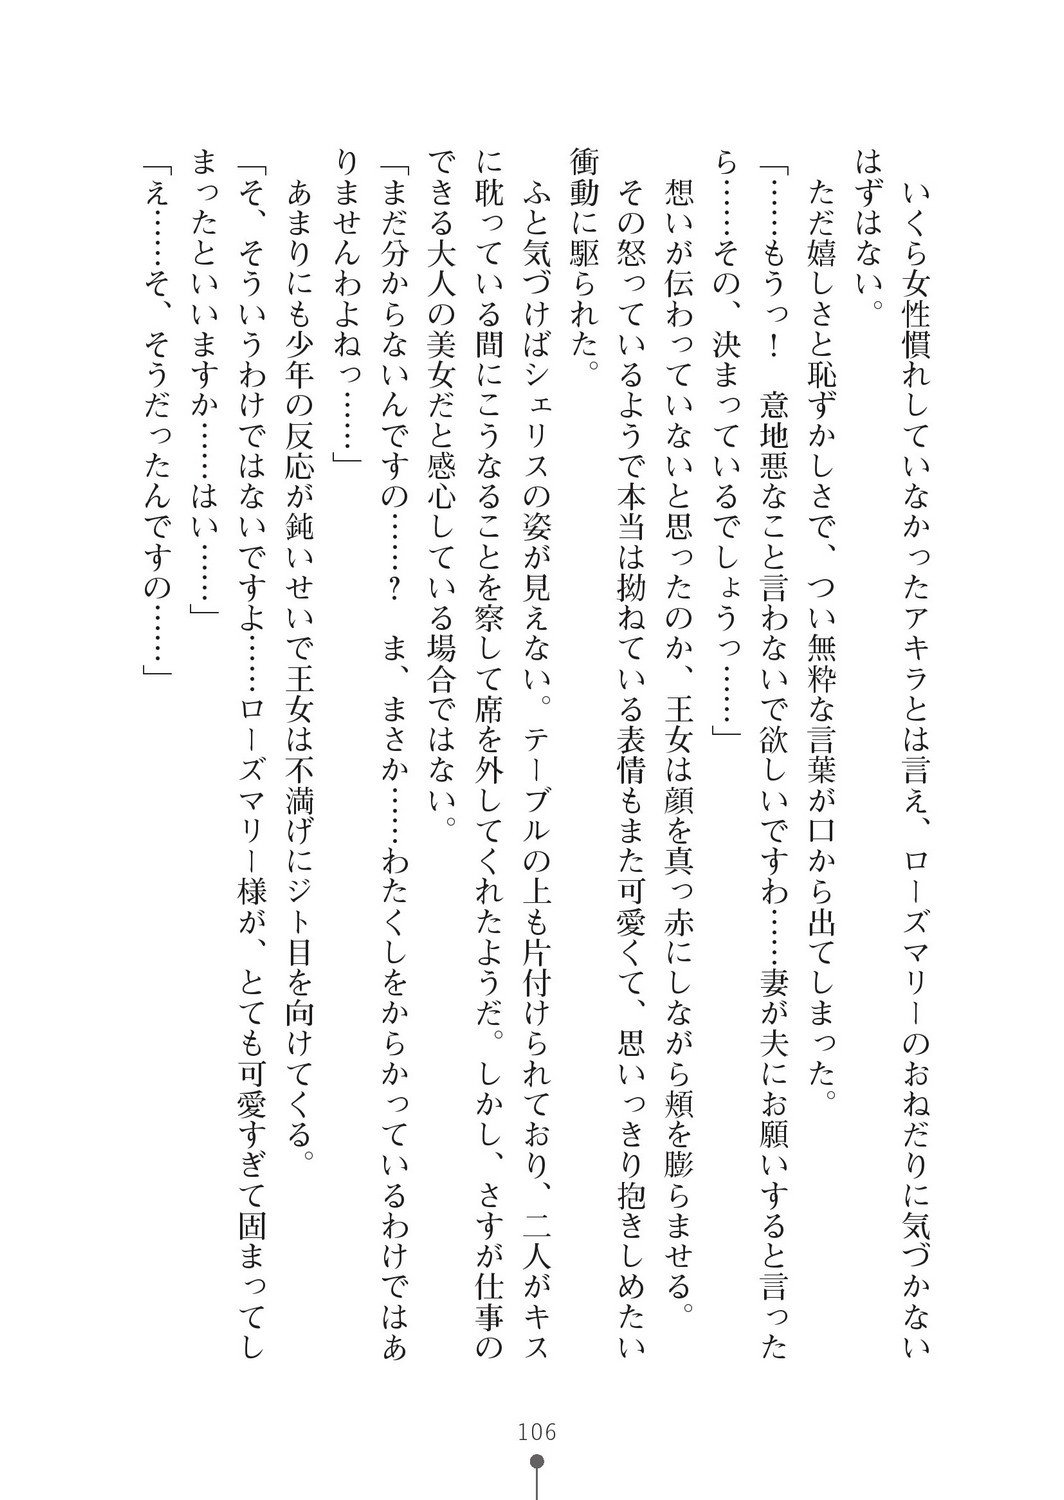 いくら女性慣れしていなかったアキラとは言え、ローズマリーのおねだりに気づかない
はずはない。
ただ嬉しさと恥ずかしさで、つい無粋な言葉が口から出てしまった。
「……もうっ！　意地悪なこと言わないで欲しいですわ……妻が夫にお願いすると言った
ら……その、決まっているでしょうっ……」
想いが伝わっていないと思ったのか、王女は顔を真っ赤にしながら頬を膨らませる。
その怒っているようで本当は拗ねている表情もまた可愛くて、思いっきり抱きしめたい
衝動に駆られた。
ふと気づけばシェリスの姿が見えない。テーブルの上も片付けられており、二人がキス
に耽っている間にこうなることを察して席を外してくれたようだ。しかし、さすが仕事の
できる大人の美女だと感心している場合ではない。
「まだ分からないんですの……？　ま、まさか……わたくしをからかっているわけではあ
りませんわよねっ……」
あまりにも少年の反応が鈍いせいで王女は不満げにジト目を向けてくる。
「そ、そういうわけではないですよ……ローズマリー様が、とても可愛すぎて固まってし
まったといいますか……はい……」
「え……そ、そうだったんですの……」
106